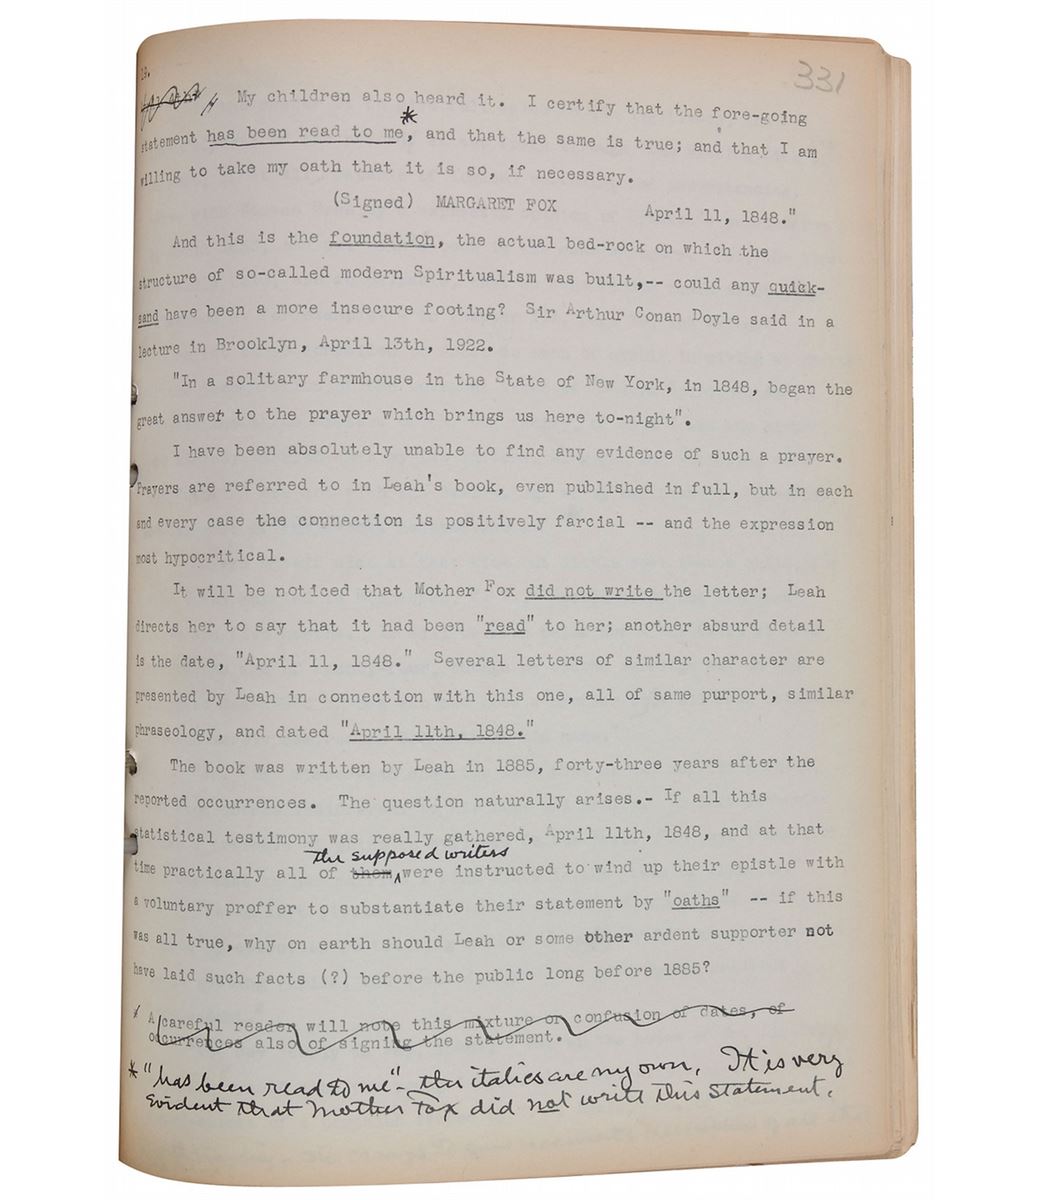 19.
331
My children also heard it. I certify that the fore-going
statement has been read to me*, and that the same is true; and that I am
willing to take my oath that it is so, if necessary.
(Signed) MARGARET FOX April 11, 1848."
And this is the foundation, the actual bed-rock on which the
structure of so-called modern Spiritualism was built,-- could any quick-
sand have been a more insecure footing? Sir Arthur Conan Doyle said in a
lecture in Brooklyn, April 13th, 1922.
"In a solitary farmhouse in the State of New York, in 1848, began the
great answer to the prayer which brings us here to-night".
I have been absolutely unable to find any evidence of such a prayer.
Prayers are referred to in Leah's book, even published in full, but in each
and every case the connection is positively farcial -- and the expression
most hypocritical.
It will be noticed that Mother Fox did not write the letter; Leah
directs her to say that it had been "read" to her; another absurd detail
is the date, "April 11, 1848." Several letters of similar character are
presented by Leah in connection with this one, all of same purport, similar
phraseology, and dated "April 11th, 1848."
The book was written by Leah in 1885, forty-three years after the
reported occurrences. The question naturally arises.- If all this
statistical testimony was really gathered, April 11th, 1848, and at that
the supposed writers
time practically all of them were instructed to wind up their epistle with
a voluntary proffer to substantiate their statement by "oaths" -- if this
was all true, why on earth should Leah or some other ardent supporter not
have laid such facts (?) before the public long before 1885?
A careful reader will note this mixture or confusion of dates, of
occurrences also of signing the statement.
* "has been read to me" - the italics are my own. It is very
evident that Mother Fox did not write this statement.